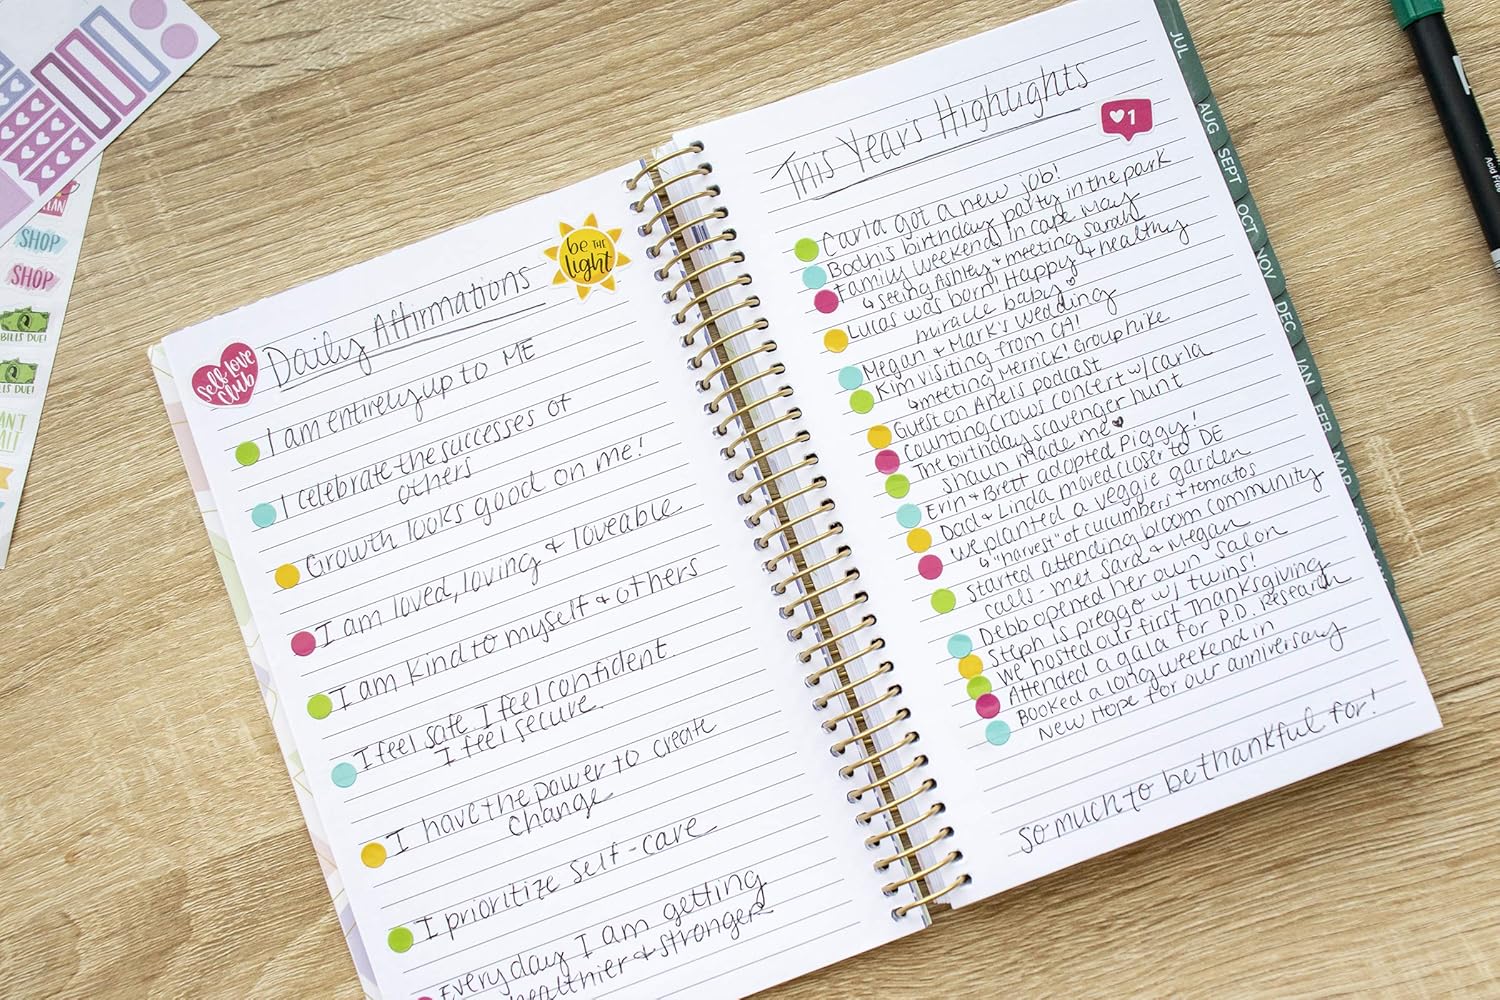 SHOP
SHOP
BILLS DUE!
BILLS DUE!
self love
club
Daily Affirmations
be THE
light
I am entirely up to ME
I celebrate the successes of
others
Growth looks good on me!
I am loved, loving & loveable
I am kind to myself & others
I feel safe. I feel confident.
I feel secure.
I have the power to create
change
I prioritize self-care
Everyday I am getting
healthier & stronger
This Years Highlights
1
Carla got a new job!
Bodhi's birthday party in the park
Family weekend in Cape May
↳ seeing Ashley + meeting Sarah
Lucas was born! Happy & healthy
miracle baby
Megan & Mark's wedding
Kim visiting from CA!
↳ meeting Merrick! group hike
Guest on Apels podcast
Counting Crows concert w/ Carla
The birthday scavenger hunt
Shaun made me
Erin & Brett adopted Piggy!
Dad & Linda moved closer to DE
We planted a veggie garden
↳ "harvest" of cucumbers + tomatos
Started attending bloom community
calls - met Sara & Megan
Debb opened her own salon
Steph is preggo w/ twins!
We hosted our first Thanksgiving
Attended a gala for P.D. Research
Booked a long weekend in
New Hope for our anniversary
so much to be thankful for!
JUL
AUG
SEPT
OCT
NOV
DEC
JAN
FEB
MAR